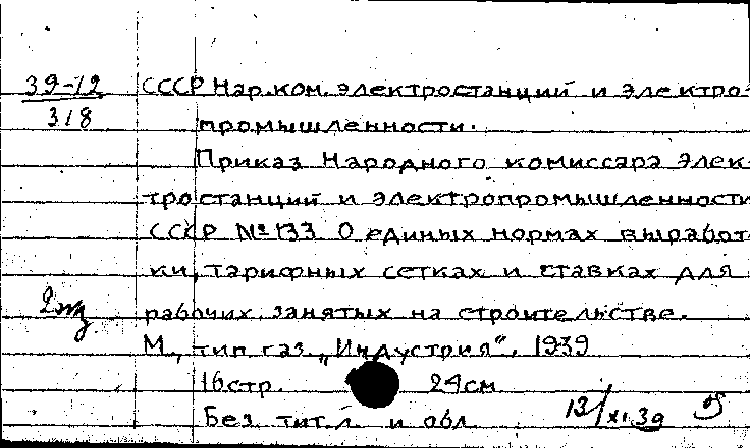 39-12
318
СССР Нар.ком. электростанций и электро-
промышленности.
Приказ Народного комиссара элек-
тростанций и электропромышленности
СССР №133 О единых нормах выработ-
ки, тарифных сетках и ставках для
рабочих, занятых на строительстве.
2экз
М., тип газ. „Индустрия“, 1939
16стр. 24см
Без тит.л. и обл
13/XI.39